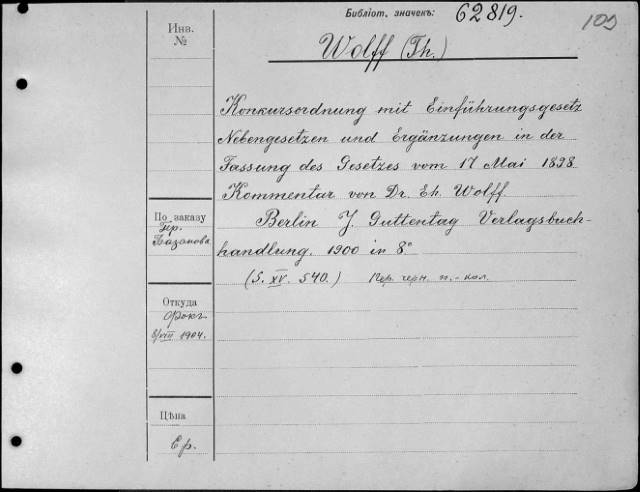 Библіот. значекъ: 62819.
109
Инв.
№
Wolff (Th.)
Konkursordnung mit Einführungsgesetz
Nebengesetzen und Ergänzungen in der
Fassung des Gesetzes vom 17 Mai 1898
Kommentar von Dr. Th. Wolff.
Berlin J. Guttentag Verlagsbuch-
handlung. 1900 in 8°
(S. XV. 540.) Пер. черн. п.-кол.
По заказу
Гер.
Базанова
Откуда
8/VIII 1904.
Цѣна